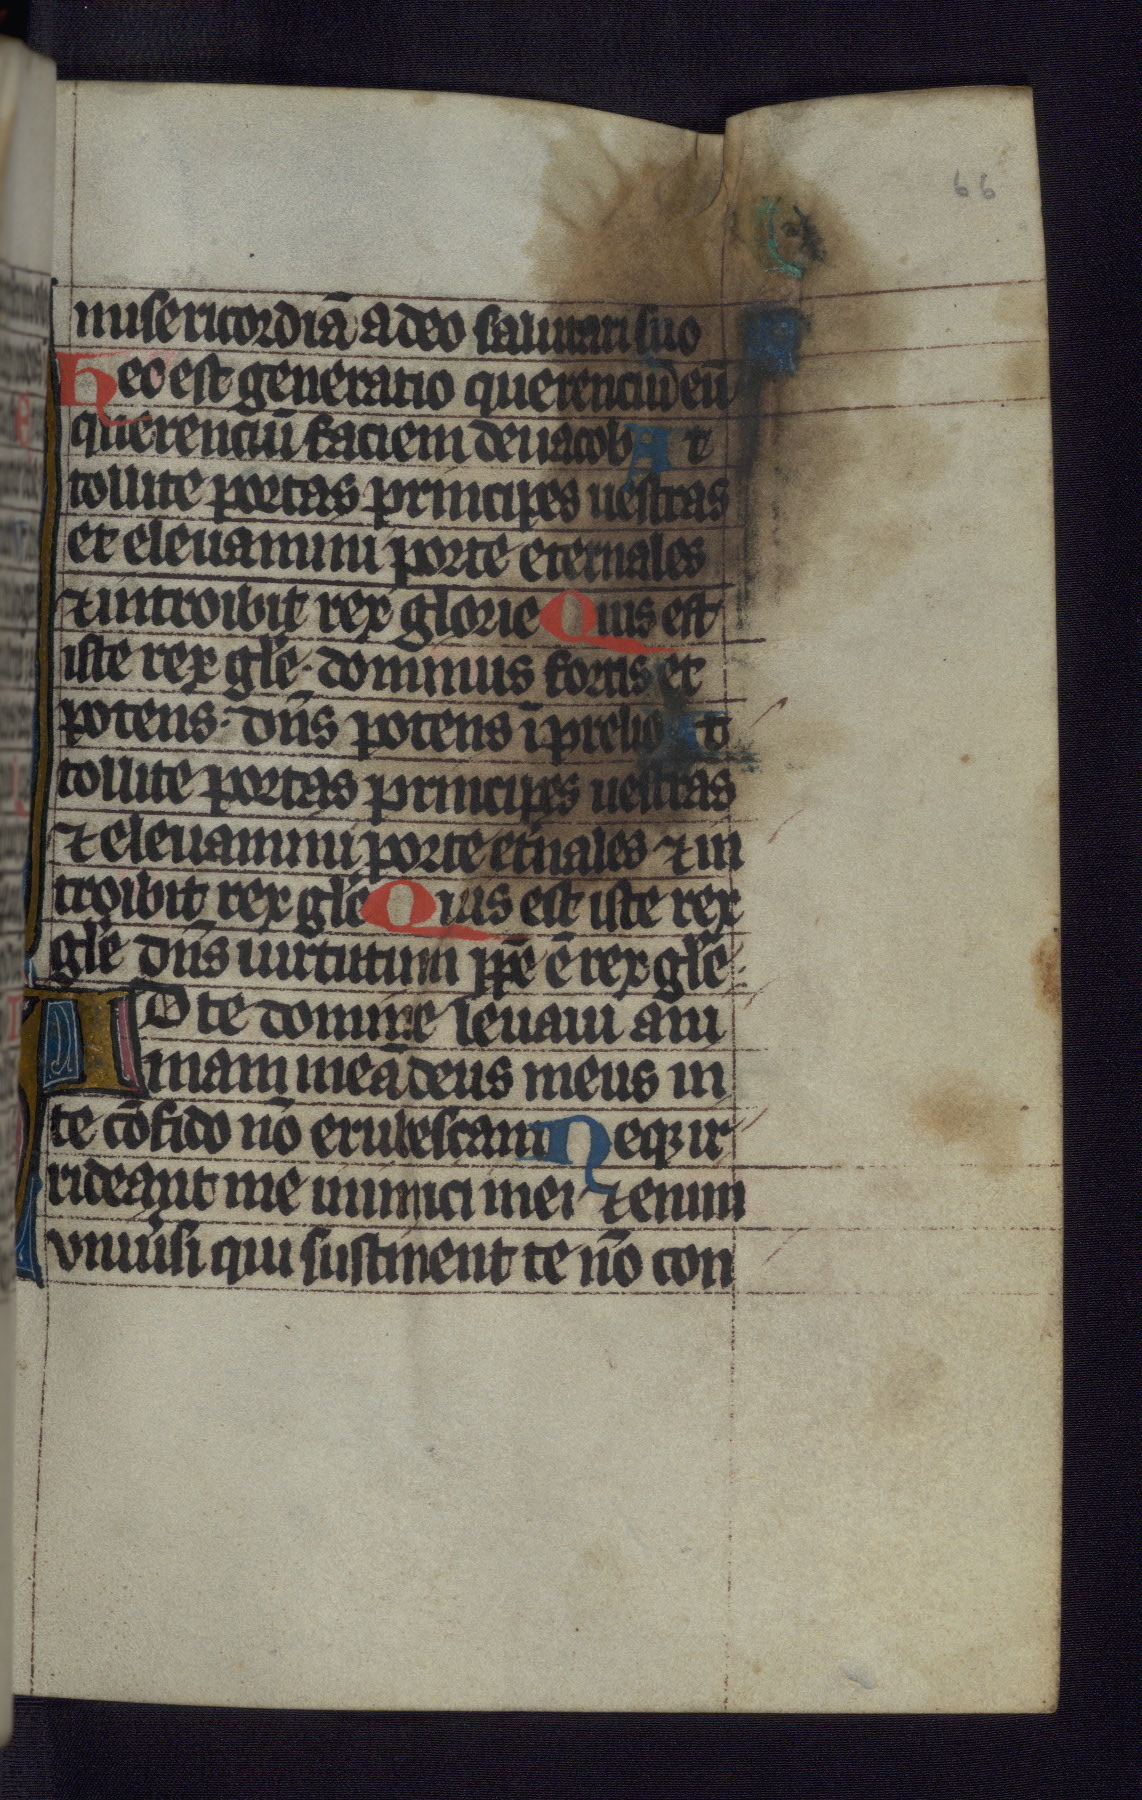 66
misericordiā a deo salutari suo
Hec est generatio querenciū eū
querenciū faciem dei iacob At
tollite portas principes uestras
et eleuamini porte eternales
⁊ introibit rex glorie Quis est
iste rex gl̄e· dominus fortis et
potens· dn̄s potens ī prelio At
tollite portas principes uestras
⁊ eleuamini porte et̄nales ⁊ in
troibit rex gl̄e Quis est iste rex
gl̄e dn̄s uirtutum ip̄e ē rex gl̄e·
AD te domine leuaui ani
mam meā deus meus in
te cōfido nō erubescam Neqꝫ ir
rideant me inimici mei ⁊enim
vniūsi qui sustinent te nō con